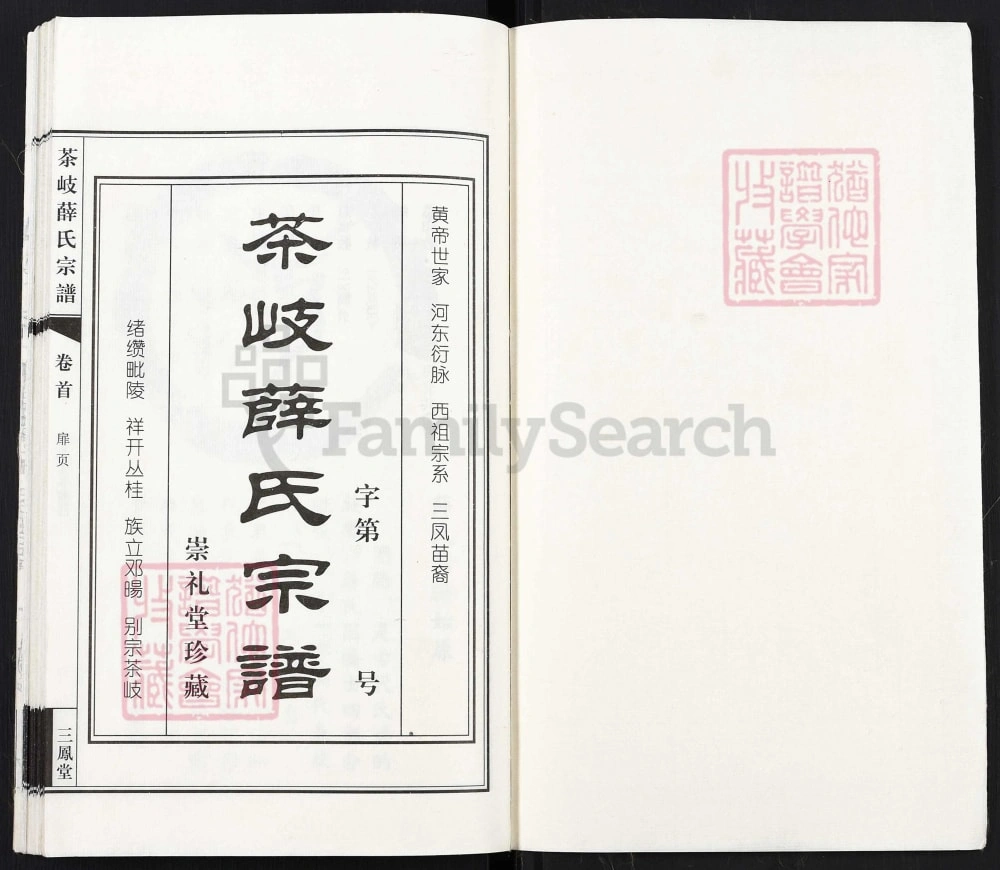 黄帝世家 河东衍脉 西祖宗系 三凤苗裔
字第 号
茶岐薛氏宗譜
崇礼堂珍藏
绪缵毗陵 祥开丛桂 族立邓暘 别宗茶岐
茶岐薛氏宗譜
卷首
扉页
三鳳堂
譜學會
FamilySearch